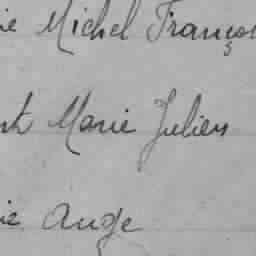 ie Michel Franço
nt Marie Julien
ie Ange